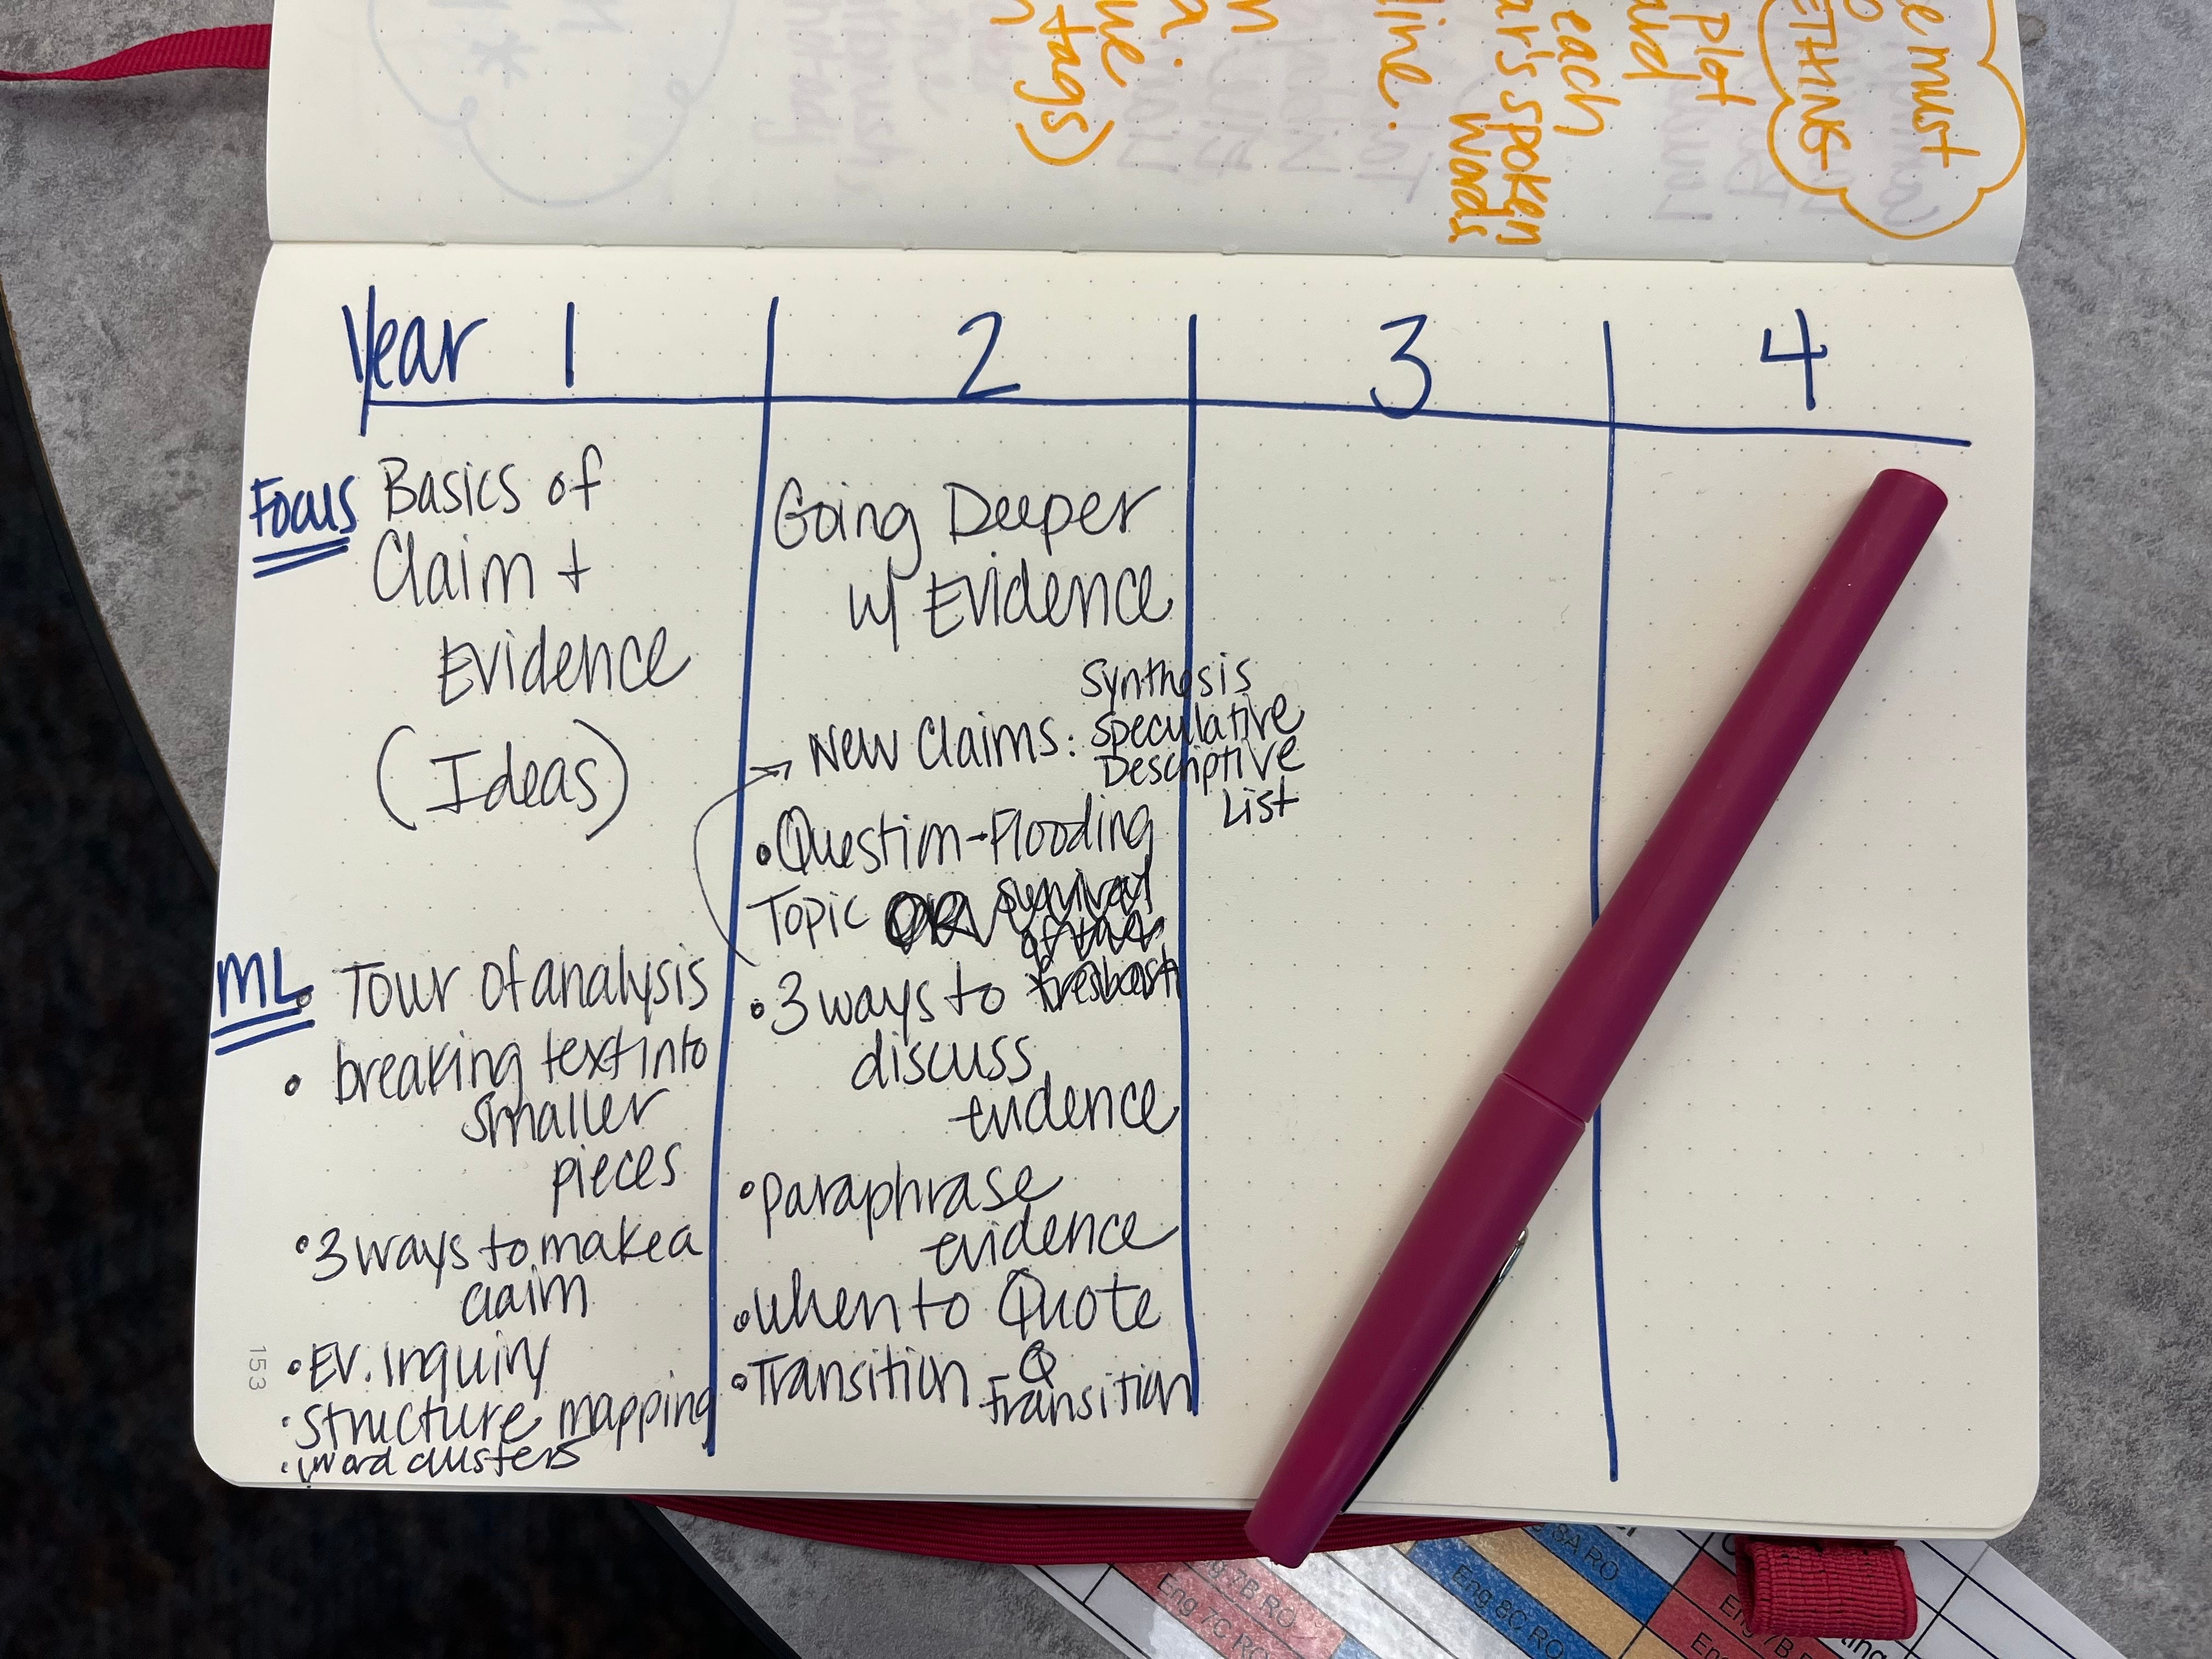 e must
ETHING
plot
and
each
ar's spoken
words
line.
tags)
Year 1 2 3 4
Focus
Basics of
Claim +
Evidence
(Ideas)
ML
• Tour of analysis
• breaking text into
smaller
pieces
• 3 ways to make a
claim
• Ev. Inquiry
• structure mapping
• word clusters
Going Deeper
w/ Evidence
→ New Claims: Synthesis
Speculative
Descriptive
List
• Question-Flooding
Topic
• 3 ways to
discuss
evidence
• paraphrase
evidence
• when to Quote
• Transition Q
transition
153
8A RO
Eng 8C RO
7B RO
Eng 7C RO